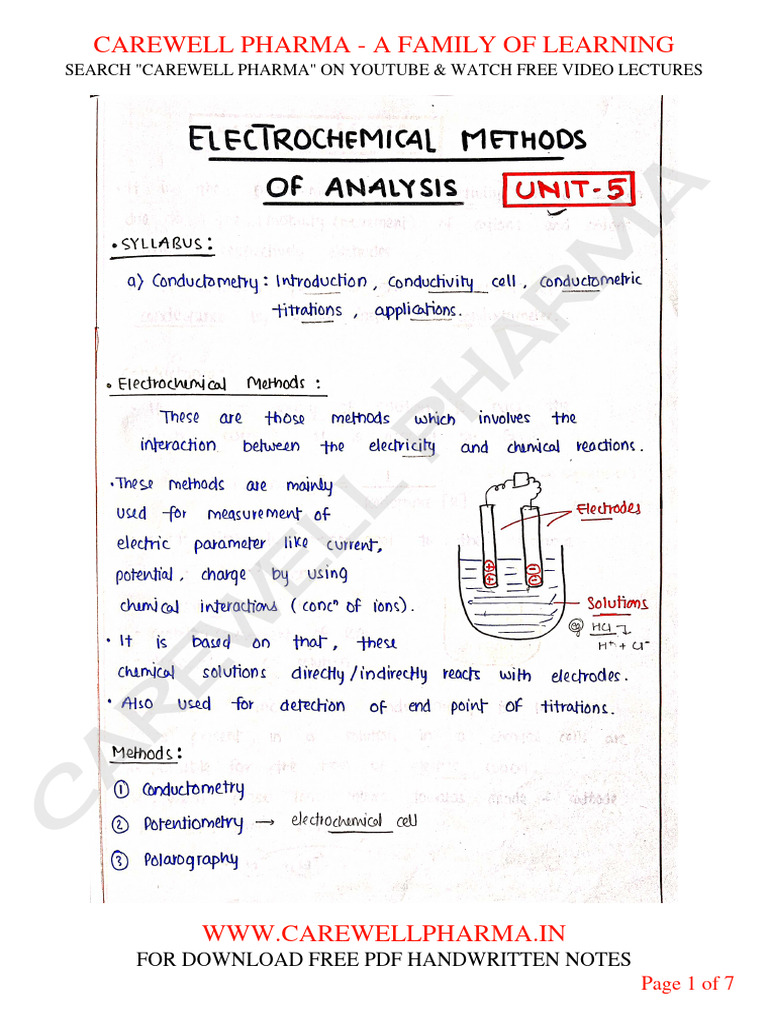 CAREWELL PHARMA - A FAMILY OF LEARNING
SEARCH "CAREWELL PHARMA" ON YOUTUBE & WATCH FREE VIDEO LECTURES
ELECTROCHEMICAL METHODS
OF ANALYSIS UNIT-5
• SYLLABUS:
a) Conductometry: Introduction, conductivity cell, conductometric
titrations, applications.
• Electrochemical Methods:
These are those methods which involves the
interaction between the electricity and chemical reactions.
• These methods are mainly
used for measurement of
electric parameter like current,
potential, charge by using
chemical interactions (concⁿ of ions).
Electrodes
+ +
- -
Solutions
eg HCl
H⁺ + Cl⁻
• It is based on that, these
chemical solutions directly/indirectly reacts with electrodes.
• Also used for detection of end point of titrations.
Methods:
① Conductometry
② Potentiometry → electrochemical cell
③ Polarography
CAREWELL PHARMA
WWW.CAREWELLPHARMA.IN
FOR DOWNLOAD FREE PDF HANDWRITTEN NOTES
Page 1 of 7